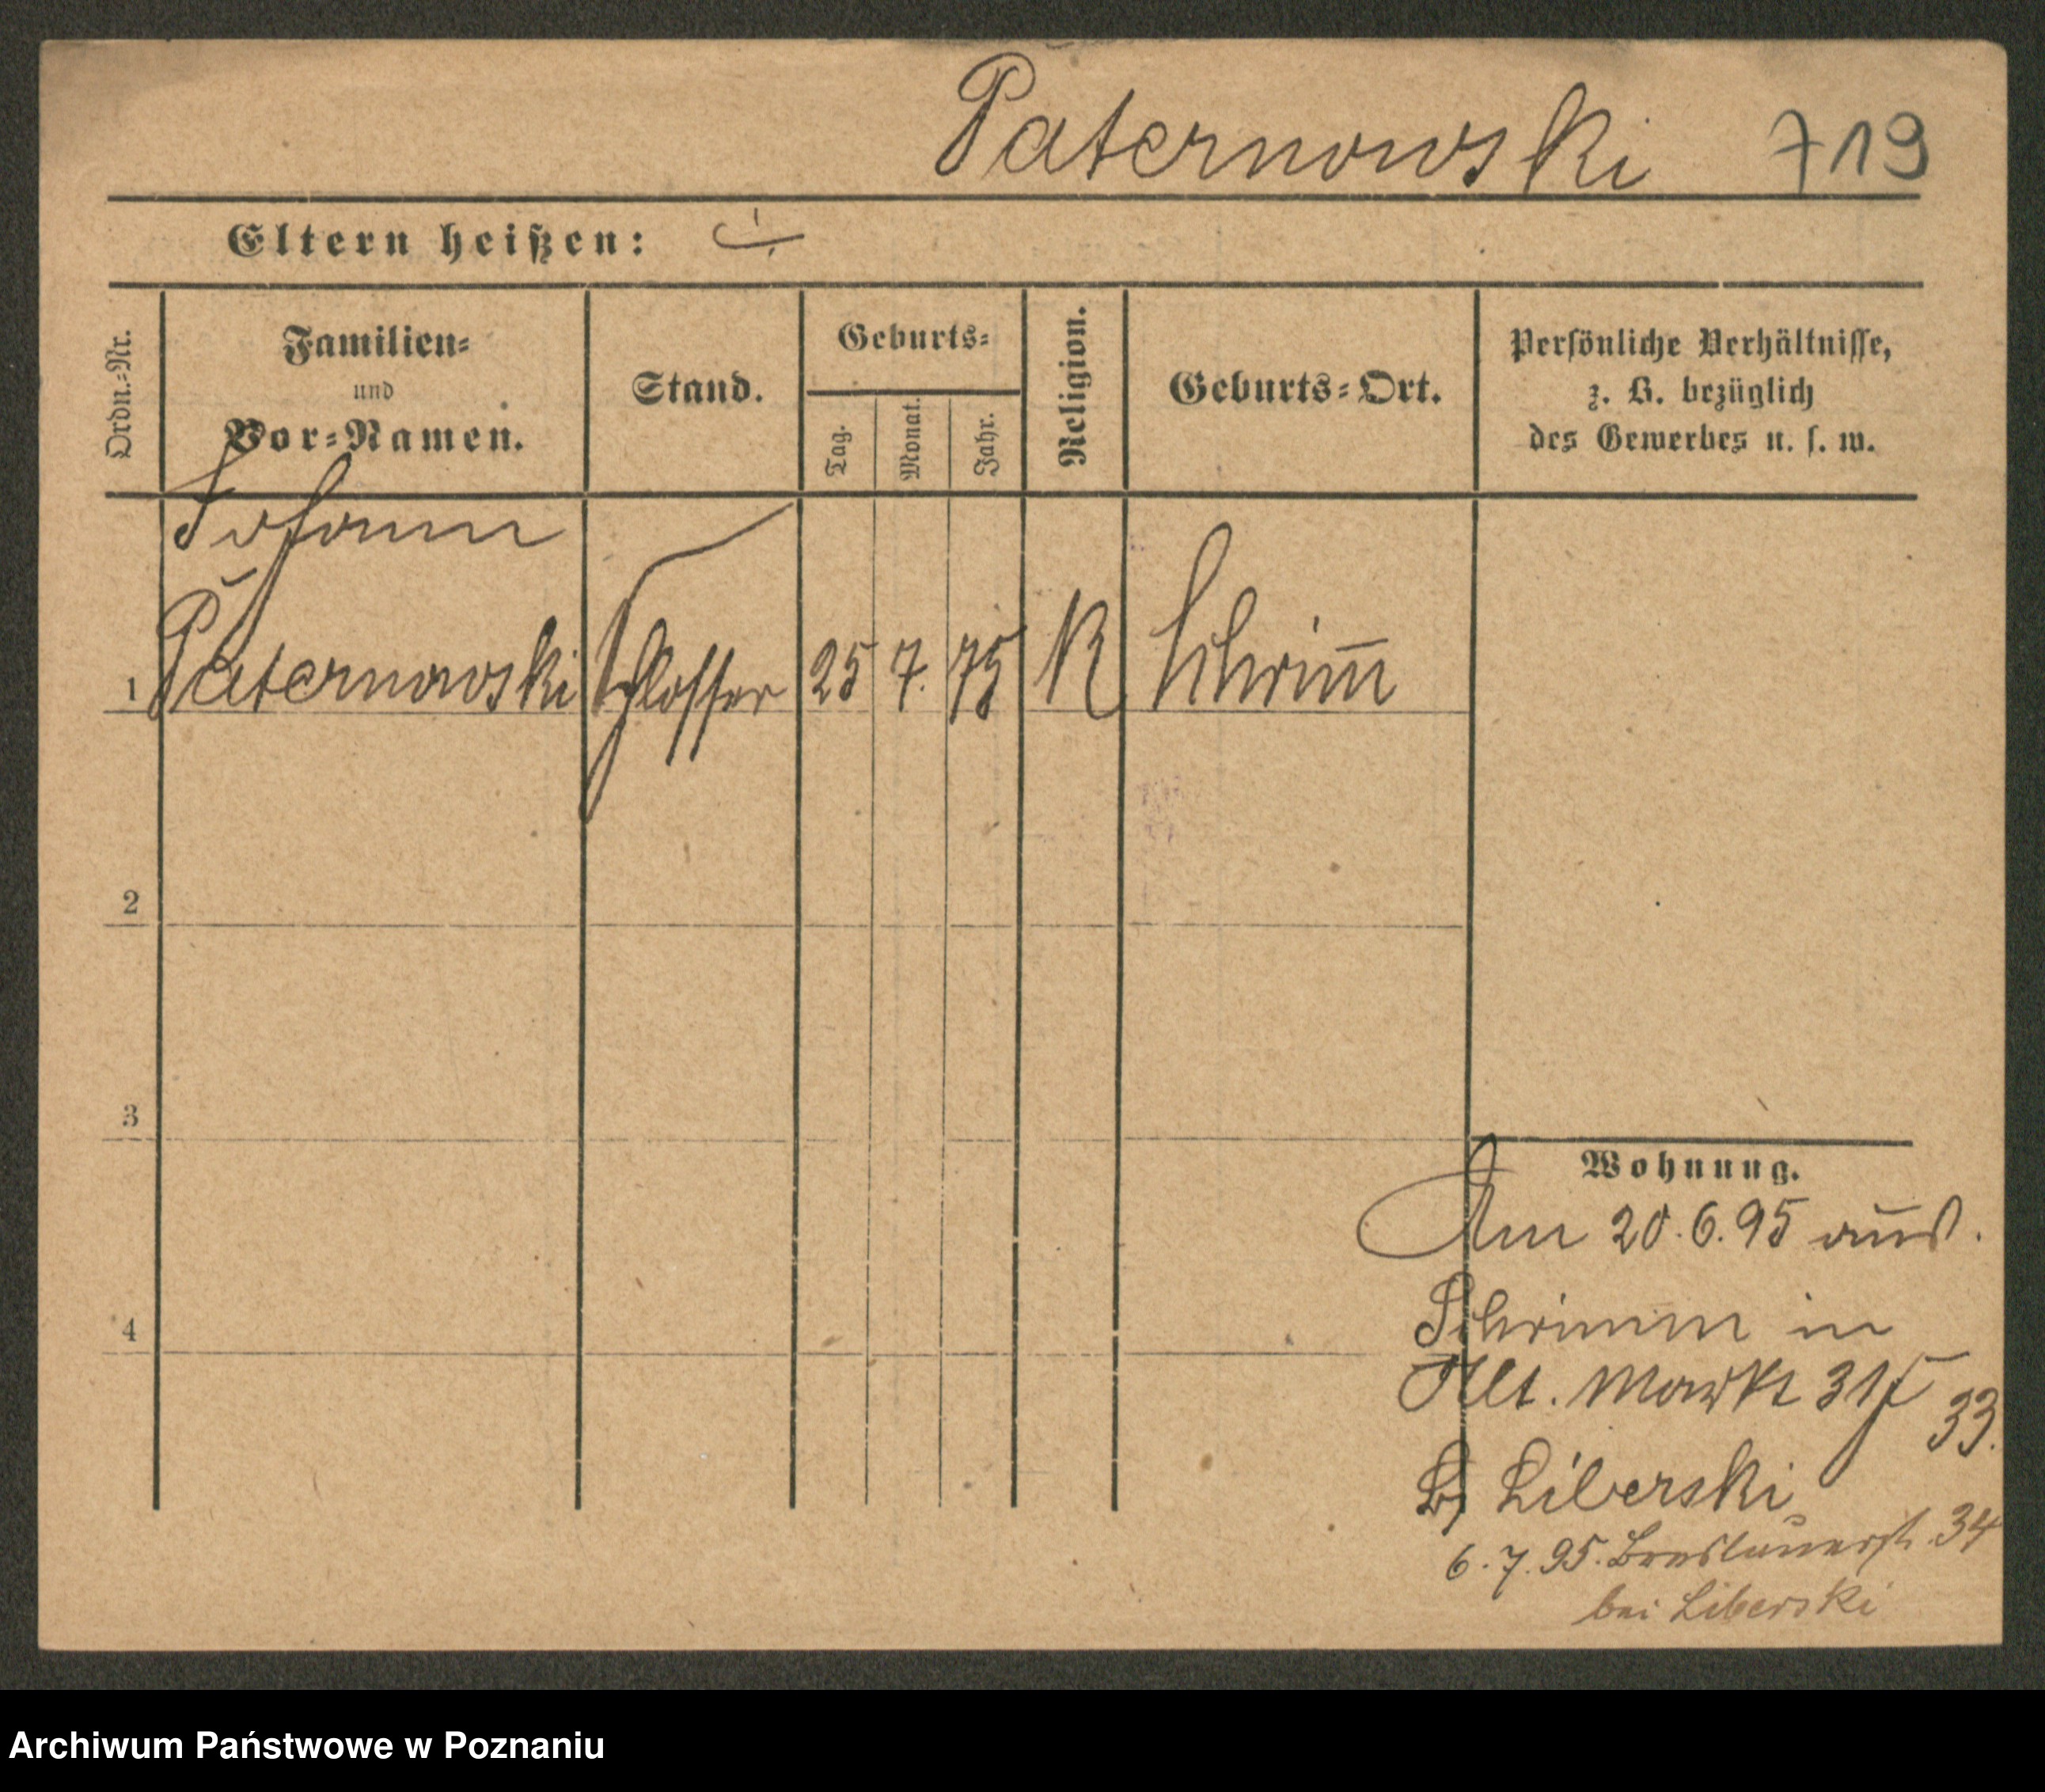 Paternowski 719
Eltern heißen: ÷
Ordn.-Nr.
Familien-
und
Vor-Namen.
Stand.
Geburts-
Tag.
Monat.
Jahr.
Religion.
Geburts-Ort.
Persönliche Verhältnisse,
z. B. bezüglich
des Gewerbes u. s. w.
Johann
1 Paternowski Schlosser 25 7. 75 K Schrim̅
2
3
4
Wohnung.
Am 20.6.95 aus.
Schrimm in
Alt. Markt 31
33.
b/ Liberski
6.7.95. Breslauerst. 34
bei Liberski
Archiwum Państwowe w Poznaniu